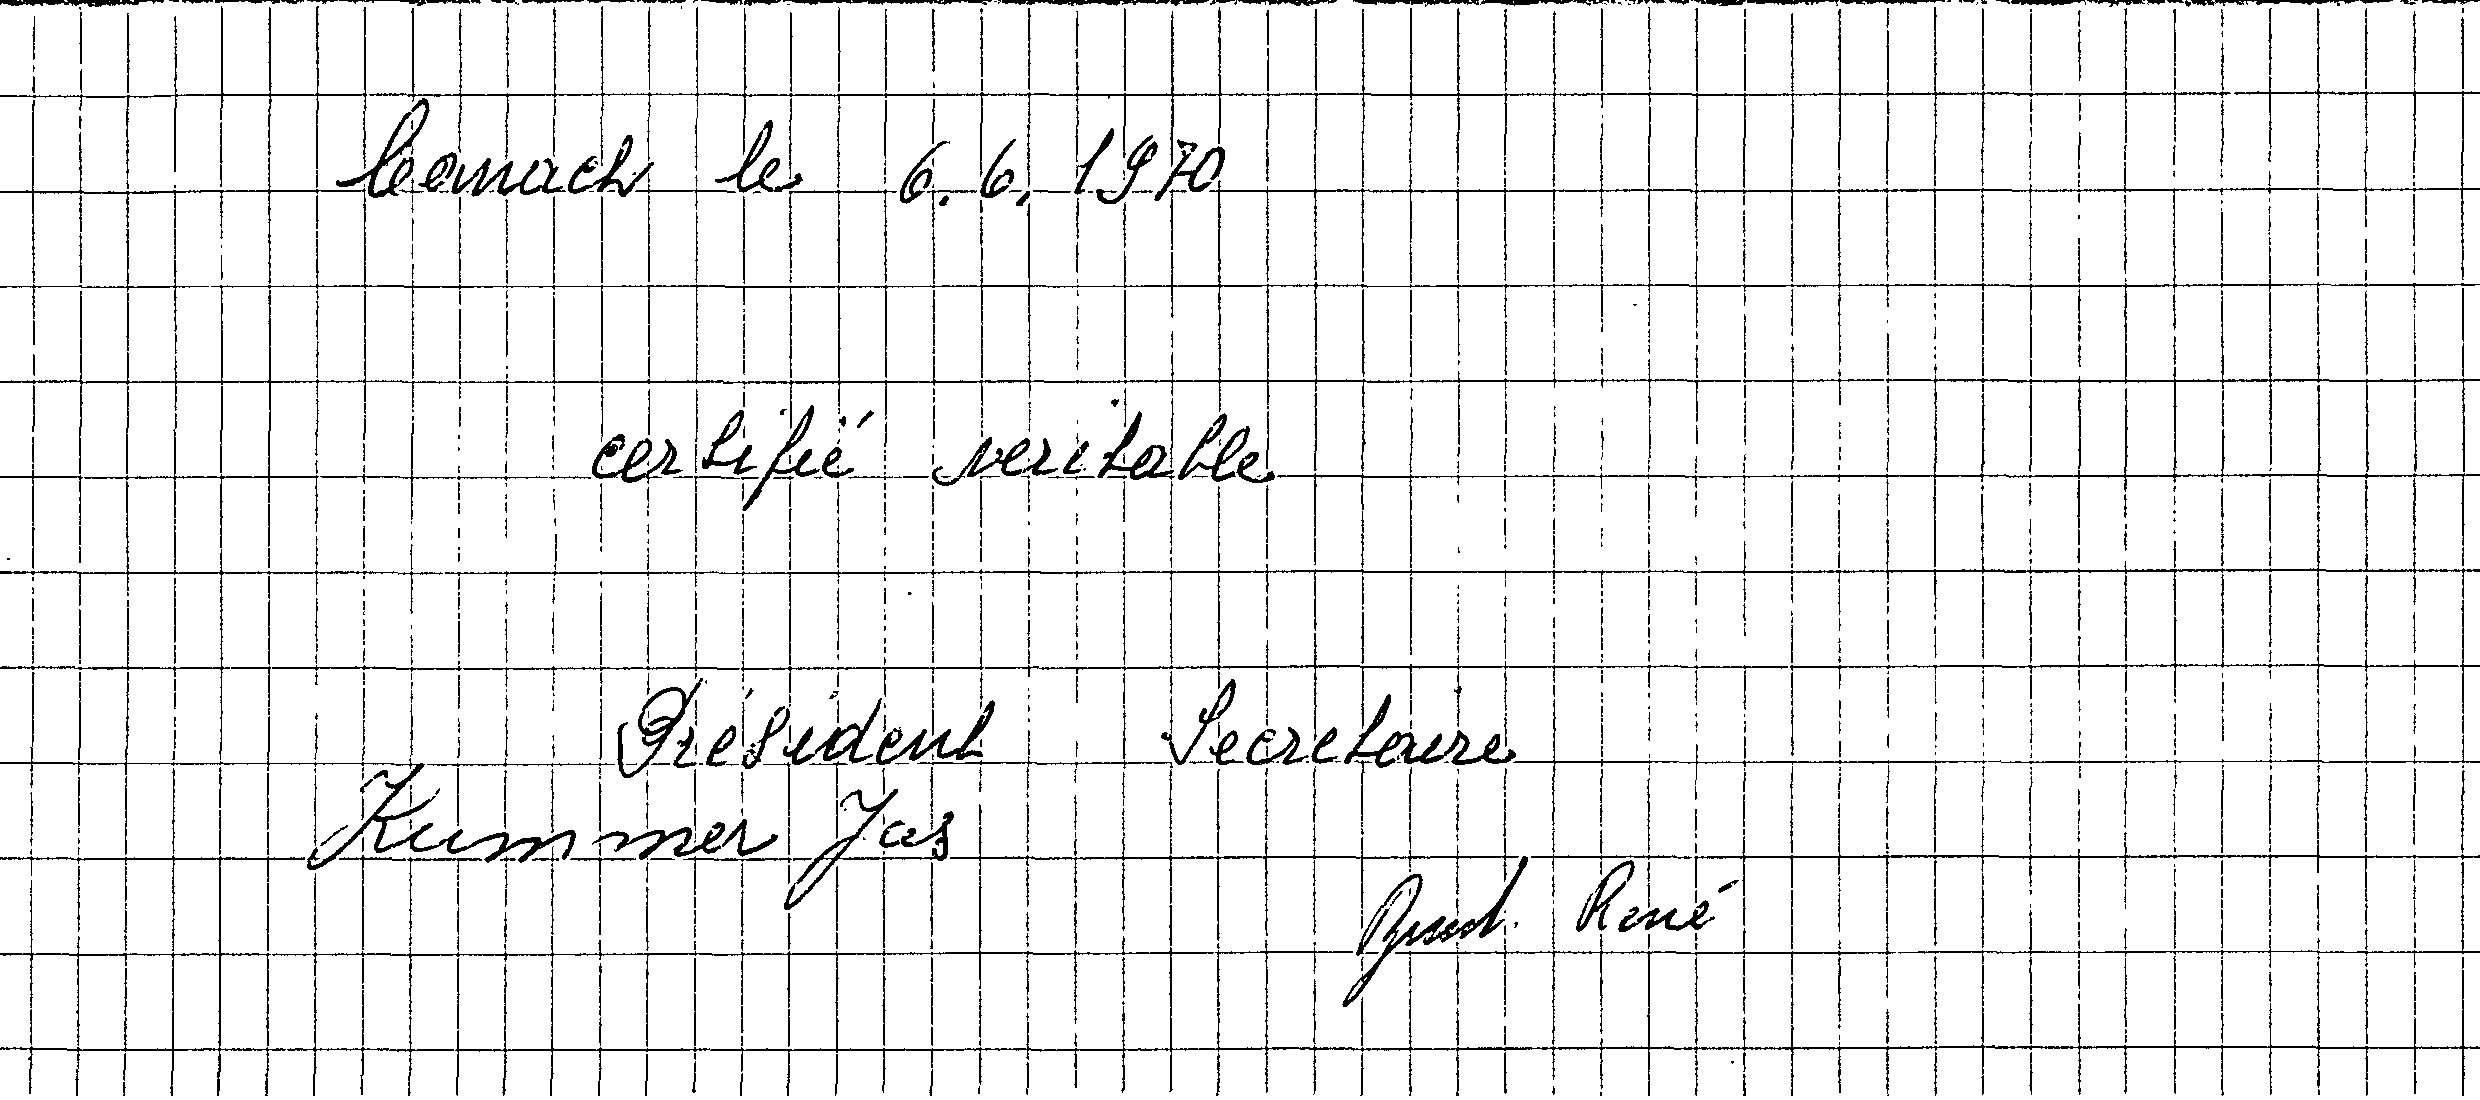 Cernach le 6.6.1970
certifié veritable
Président Secretaire
Kummer Jos
René